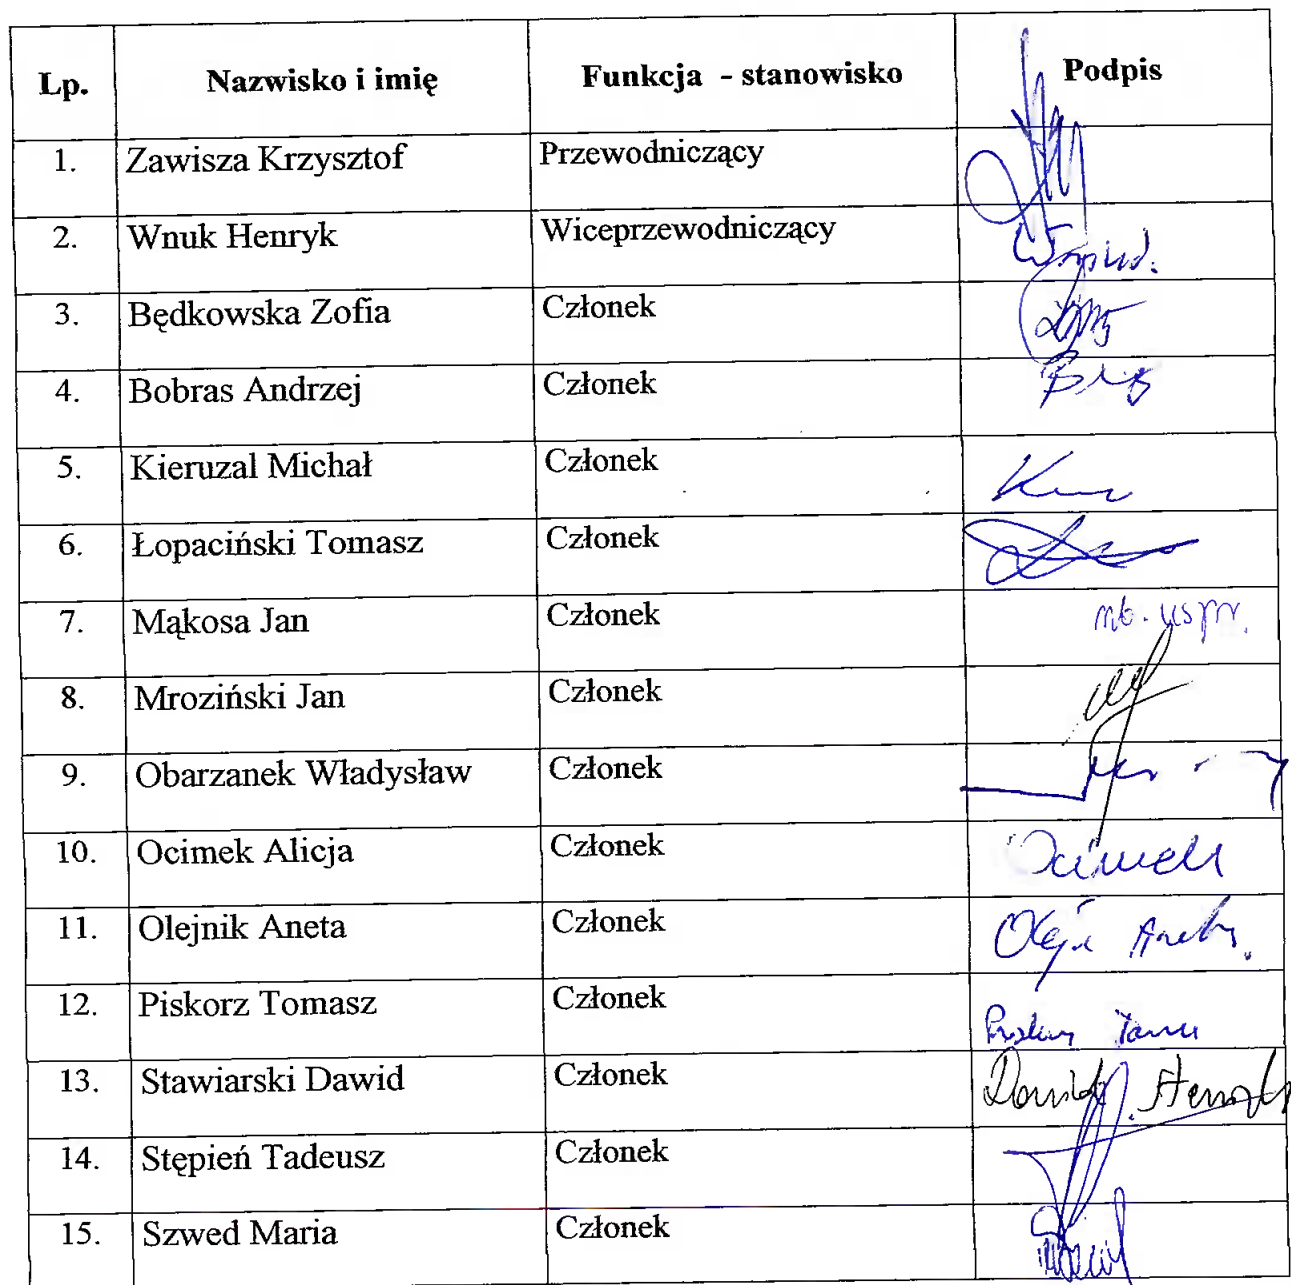 Lp. Nazwisko i imię Funkcja - stanowisko Podpis
1. Zawisza Krzysztof Przewodniczący
2. Wnuk Henryk Wiceprzewodniczący
3. Będkowska Zofia Członek
4. Bobras Andrzej Członek
5. Kieruzal Michał Członek
6. Łopaciński Tomasz Członek
7. Mąkosa Jan Członek nb. uspr.
8. Mroziński Jan Członek
9. Obarzanek Władysław Członek
10. Ocimek Alicja Członek Ocimek
11. Olejnik Aneta Członek
12. Piskorz Tomasz Członek
13. Stawiarski Dawid Członek Dawid
14. Stępień Tadeusz Członek
15. Szwed Maria Członek